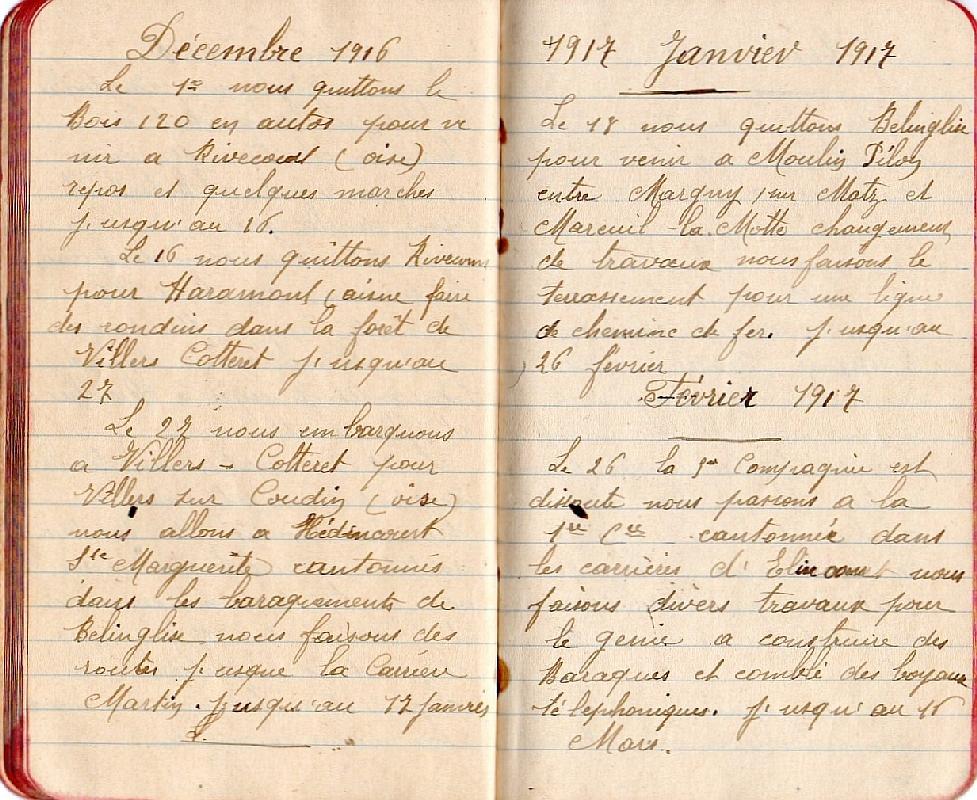 Décembre 1916
Le 1er nous quittons le
Bois 120 en autos pour ve
nir a Rivecourt (oise)
repos et quelques marches
jusqu'au 16.
Le 16 nous quittons Rivecourt
pour Haramont (aisne faire
des rondins dans la forêt de
Villers Cotteret jusqu'au
27
Le 27 nous embarquons
a Villers - Cotteret pour
Villers sur Coudin (oise)
nous allons a
Ste Marguerite cantonnés
dans les baraquements de
Belinglise nous faisons des
routes jusque la Carrière
Martin. jusqu'au 17 janvier
1917 Janvier 1917
Le 18 nous quittons Belinglise
pour venir a Moulin
entre Margny sur Matz et
Mareuil-la-Motte changement
de travaux nous faisons le
terrassement pour une ligne
de chemins de fer. jusqu'au
26 février
Février 1917
Le 26 la Compagnie est
dissoute nous passons a la
1re Cie cantonnée dans
les carrières d'Elincourt nous
faisons divers travaux pour
le genie a construire des
Baraques et comblé des boyaux
téléphoniques. jusqu'au 16
Mars.